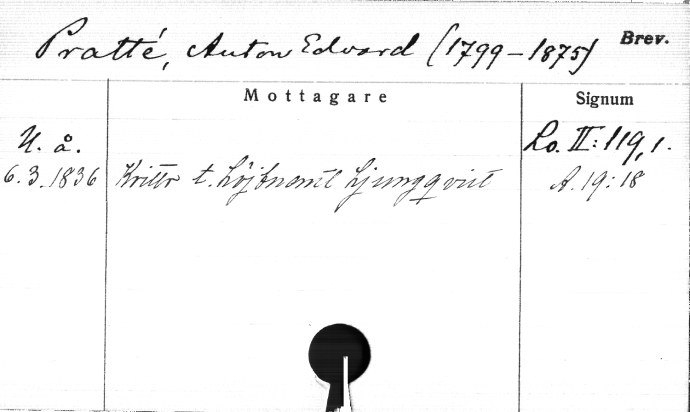 Pratté, Anton Edvard (1799-1875) Brev.
Mottagare Signum
U. å. Lo. II:119,1.
6.3.1836 t. Löjtnant Ljungqvist A.19:18